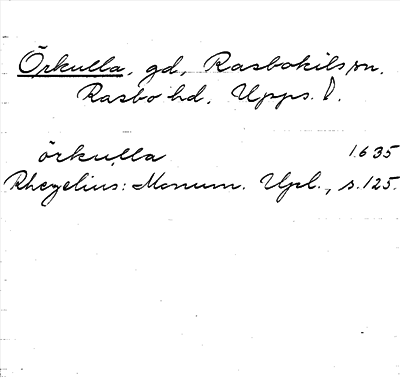 Örkulla, gd, Rasbokils sn.
Rasbo hd. Upps. l.
örkulla 1635
Rhezelius: Monum. Upl., s. 125.